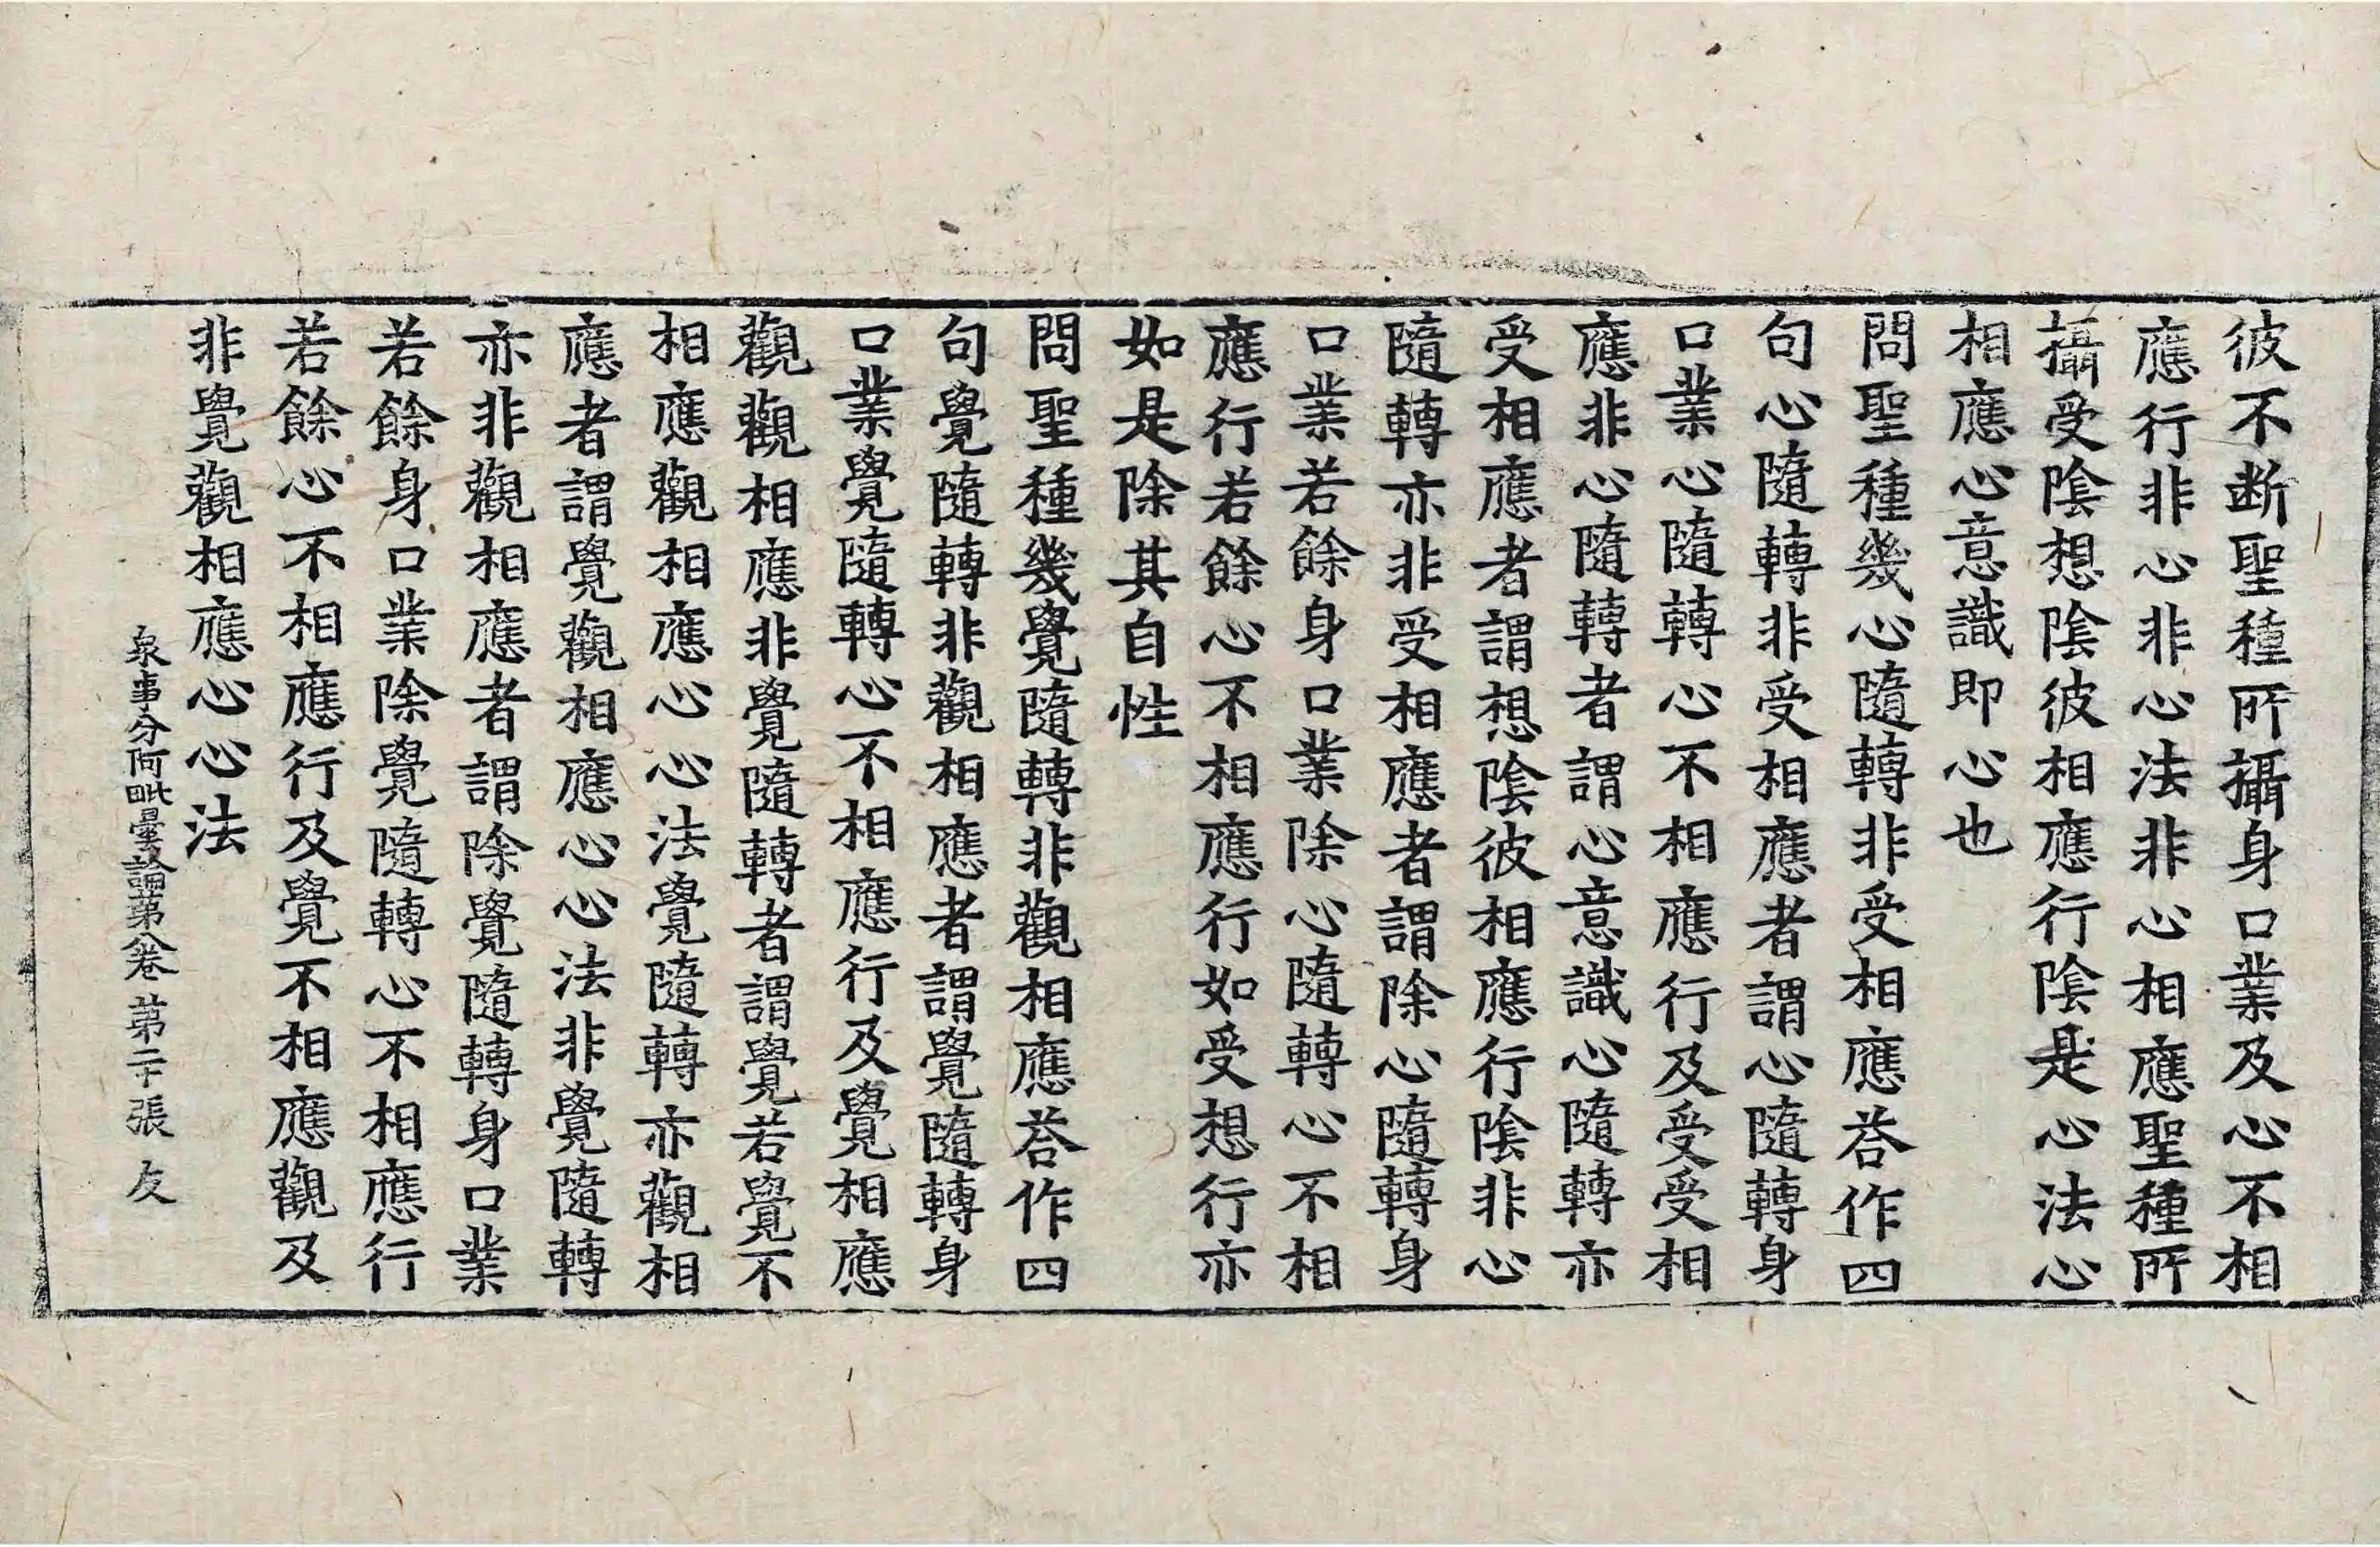 彼不断聖種所攝身口業及心不相
應行非心非心法非心相應聖種所
攝受陰想陰彼相應行陰是心法心
相應心意識即心也
問聖種幾心隨轉非受相應荅作四
句心隨轉非受相應者謂心隨轉身
口業心隨轉心不相應行及受受相
應非心隨轉者謂心意識心隨轉亦
受相應者謂想陰彼相應行陰非心
隨轉亦非受相應者謂除心隨轉身
口業若餘身口業除心隨轉心不相
應行若餘心不相應行如受想行亦
如是除其自性
問聖種幾覺隨轉非觀相應荅作四
句覺隨轉非觀相應者謂覺隨轉身
口業覺隨轉心不相應行及覺相應
觀觀相應非覺隨轉者謂覺若覺不
相應觀相應心心法覺隨轉亦觀相
應者謂覺觀相應心心法非覺隨轉
亦非觀相應者謂除覺隨轉身口業
若餘身口業除覺隨轉心不相應行
若餘心不相應行及覺不相應觀及
非覺觀相應心心法
衆事分阿毗曇論第八卷 第二十張 友